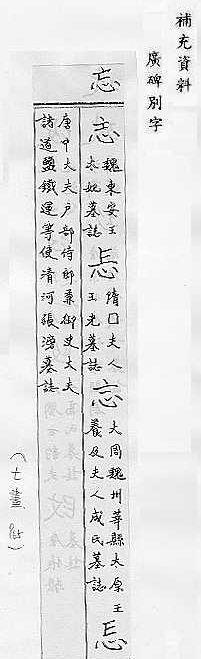 補充資料
廣碑別字
忘
忘 魏東安王太妃墓誌 忘 隋囗夫人王光墓誌 忘 大周魏州莘縣太原王養及夫人成氏墓誌 忘
唐中大夫戶部侍郎兼御史大夫諸道鹽鐵運等使清河張滂墓誌
(七畫